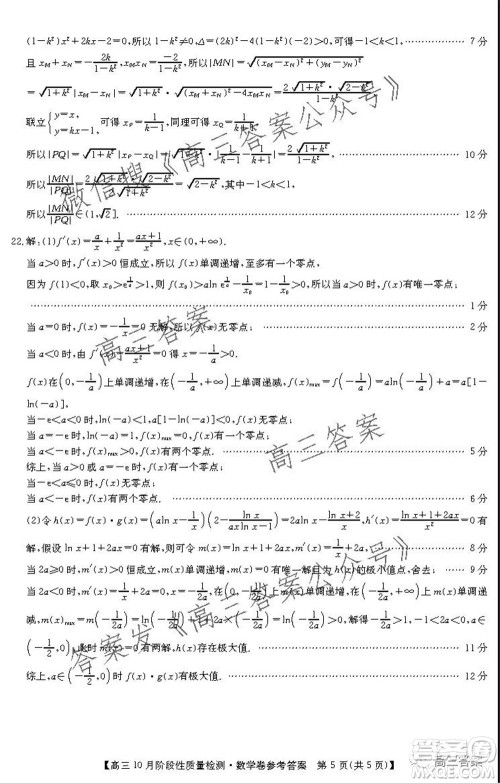 (1-k²)x²+2kx-2=0,所以1-k²≠0,Δ=(2k)²-4(1-k²)(-2)>0,可得-1<k<1. 7分
且x_M+x_N=-2k/(1-k²),x_Mx_N=-2/(1-k²),所以|MN|=√((x_M-x_N)²+(y_M-y_N)²)
=√(1+k²)|x_M-x_N|=√(1+k²)·√((x_M+x_N)²-4x_Mx_N)=2√(1+k²)·√(2-k²)/(1-k²).
联立{y=x, y=kx-1, 可得x_P=1/(k-1),同理可得x_Q=
所以|PQ|=√(1+k²)|x_P-x_Q|=√(1+k²) 10分
所以|MN|/|PQ|= =√(2-k²),其中-1<k<1.
所以|MN|/|PQ|∈(1,√2]. 12分
22.解:(1)f′(x)=a/x+1/x²=(ax+1)/x²,x∈(0,+∞).
当a>0时,f′(x)>0恒成立,所以f(x)单调递增,至多有一个零点;
因为f(1)<0,取x₀>e^(1/a)>1,则f(x₀)>aln e^(1/a)-1/x₀=1-1/x₀>0,所以f(x)有唯一零点;
1分
当a=0时,f(x)=-1/x=0无解,所以f(x)无零点; 2分
当a<0时,由f′(x)=(ax+1)/x²=0得x=-1/a>0.
f(x)在(0,-1/a)上单调递增,在(-1/a,+∞)上单调递减,f(x)max=f(-1/a)=aln(-1/a)+a=a[1-
ln(-a)],
当-e<a<0时,ln(-a)<1,a[1-ln(-a)]<0,f(x)无零点;
当a=-e时,f(x)max=0,f(x)有一个零点;
当a<-e时,f(x)max>0,f(x)有两个零点. 5分
综上,当a>0或a=-e时,f(x)有一个零点;
当-e<a≤0时,f(x)无零点;
当a<-e时,f(x)有两个零点. 6分
(2)令h(x)=f(x)·g(x)=(aln x-1/x)(2-ln x/(ax ln x-1))=2aln x-(ln x+2)/x,h′(x)=(ln x+1+2ax)/x²=0有
解,假设ln x+1+2ax=0有解,则可令m(x)=ln x+1+2ax=0有解,m′(x)=1/x+2a, 8分
当2a≥0时,m′(x)>0恒成立,m(x)单调递增,所以m(x)=0的唯一解为h(x)的极小值点,舍去; 9分
当2a<0时,m′(x)=1/x+2a=0解得x=-1/(2a)>0,所以m(x)在(0,-1/(2a))上单调递增,在(-1/(2a),+∞)上单调递
减,所以m(x)max=m(-1/(2a))=ln(-1/(2a))+1+2a×(-1/(2a))=ln(-1/(2a))>0,解得-1/(2a)>1,所以a∈
(-1/2,0),此时m(x)=0有两个解,h(x)存在极大值. 11分
综上,a∈(-1/2,0)时,f(x)·g(x)有极大值. 12分
微信搜《高三答案公众号》
高三答案
高三答案
答案发《高三答案公众号》
【高三10月阶段性质量检测·数学卷参考答案 第5页(共5页)】
高三答案